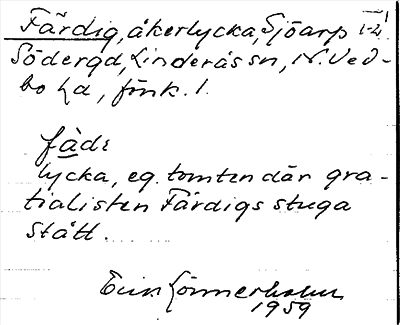 Färdig, åkerlycka, Sjöarp 1-2
Södergd, Linderås sn, N. Ved-
bo hd, fönk. l.
fà̱d:
lycka, eg. tomten där gra-
tialisten Färdigs stuga
stått.
Erik Lönnerholm
1959